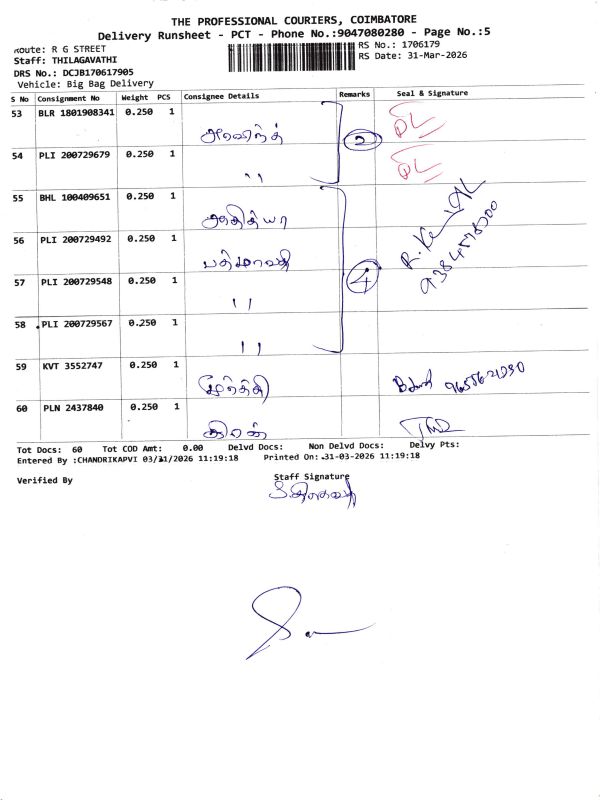 THE PROFESSIONAL COURIERS, COIMBATORE
Delivery Runsheet - PCT - Phone No.:9047080280 - Page No.:5
Route: R G STREET
RS No.: 1706179
Staff: THILAGAVATHI
RS Date: 31-Mar-2026
DRS No.: DCJB170617905
Vehicle: Big Bag Delivery
S No Consignment No Weight PCS Consignee Details Remarks Seal & Signature
53 BLR 1801908341 0.250 1
அரவிந்த் 2
54 PLI 200729679 0.250 1
"
55 BHL 100409651 0.250 1
ஆதித்யா
56 PLI 200729492 0.250 1
பத்மாவதி
57 PLI 200729548 0.250 1
" 4
58 PLI 200729567 0.250 1
"
59 KVT 3552747 0.250 1
மூர்த்தி
60 PLN 2437840 0.250 1
கிரண்
Tot Docs: 60 Tot COD Amt: 0.00 Delvd Docs: Non Delvd Docs: Delvy Pts:
Entered By :CHANDRIKAPVI 03/31/2026 11:19:18 Printed On: 31-03-2026 11:19:18
Verified By
Staff Signature